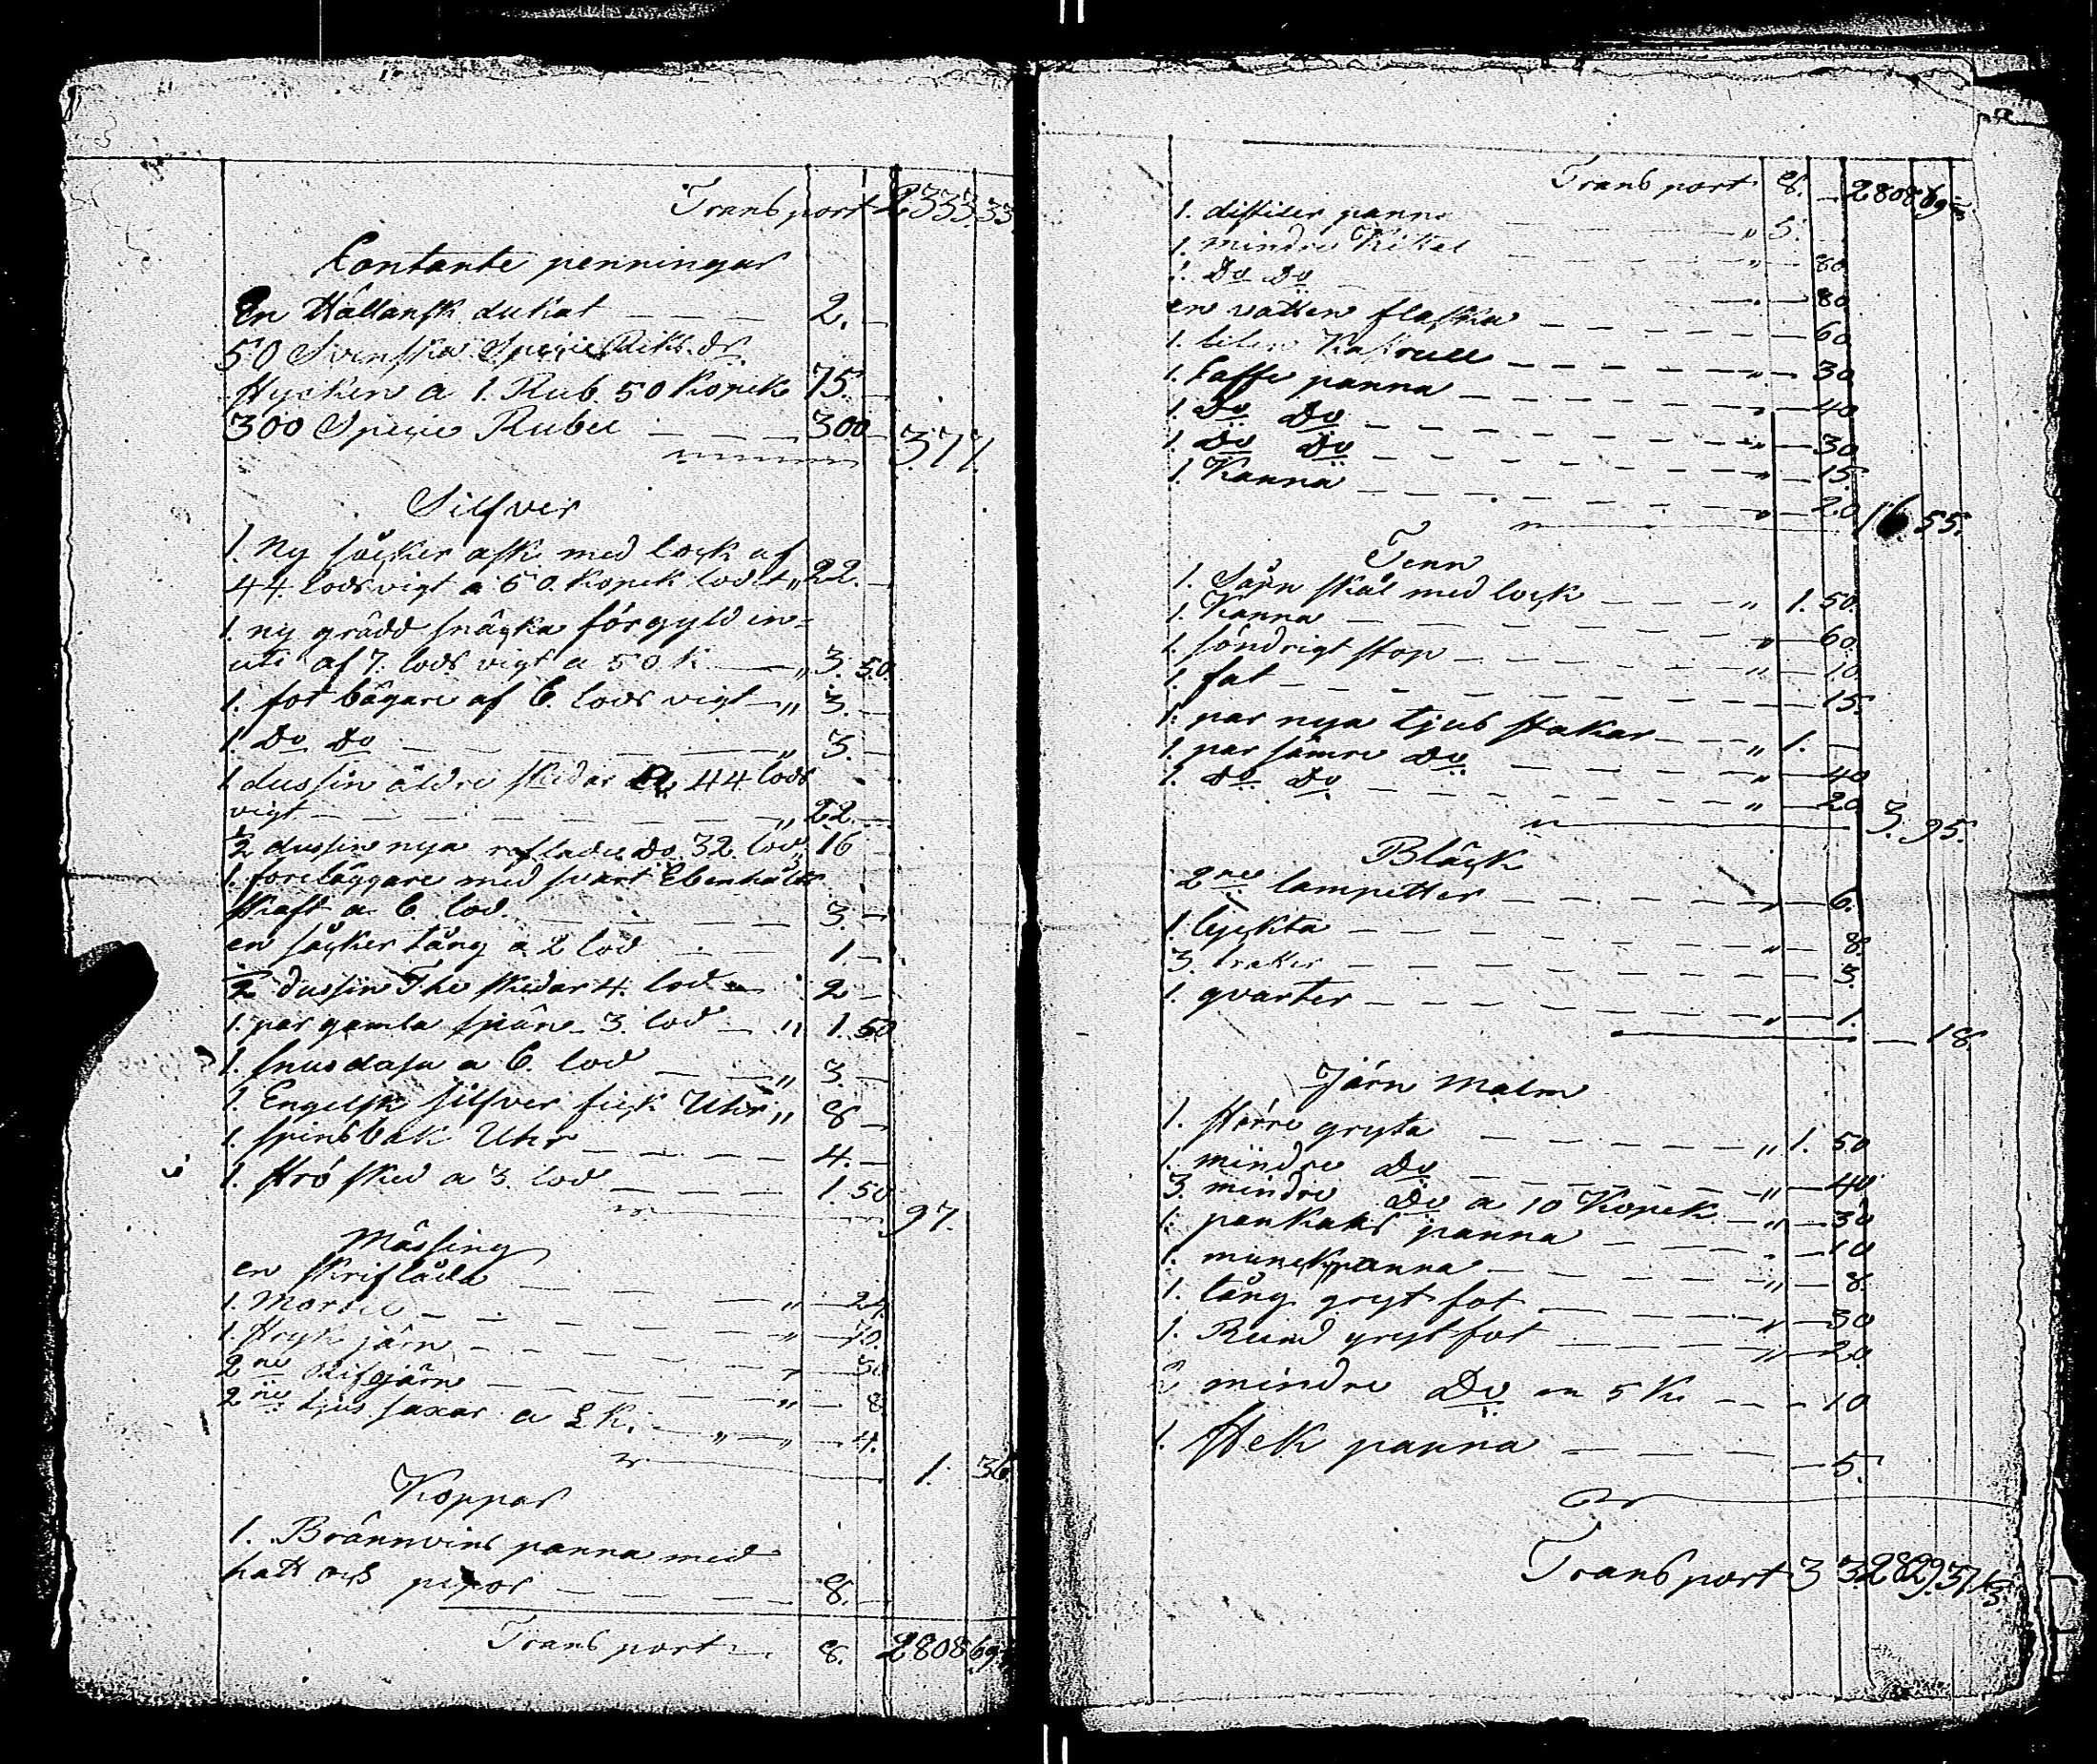 Transport 2333 33
Contante penningar
En Hållansk dukat 2. —
50 Svenska Specie Riks dr
stycken a 1. Rub. 50 Kopek 75. —
300 Specie Rubel 300 — 377.
Silfver
1. Ny såcker ask med lock af
44. lods vigt a 50. Kopek lodet „ 22. —
1. ny grädd snäcka förgyld in-
uti af 7. lods vigt a 50. K — „ 3. 50.
1. fot bägare af 6. lods vigt — „ 3. —
1. Do Do „ 3. —
1 dussin äldre skedar a 44 lods
vigt „ 22. —
½ dussin nya reflade Do. 32. lod „ 16 —
1. foreläggare med svart Ebenholtz
skaft a 6. lod 3. —
en såcker tång a 2 lod 1 —
½ dussin The skedar 4. lod 2 —
1. par gamla späne 3. lod — „ 1. 50
1. snusdosa a 6. lod „ 3. —
1. Engelsk silfver fick Uhr „ 8 —
1. spinsbak Uhr 4. —
1. strö sked a 3. lod 1. 50
97.
Mässing
en skriflåda „ — 24.
1. Mortel „ — 70.
1. stryk järn „ — 30
2ne Rifjärn „ — 8.
2ne ljus saxar a 2 K. „ — 4.
1. 36.
Koppar
1. Brännvins panna med
hatt och pipor 8. —
Transport 8. 2808 69
Transport 8. — 2808 69 ⅓
1. distiler panna „ 5.
1. mindre Kittel „ — 80
1. Do Do — 80
en vatten flaska — 60
1. liten Kastrull „ — 30
1. Caffe panna — 40
1. Do Do „ — 30
1. Do Do „ — 15.
1. Kanna „ — 20
16. 55.
Tenn
1. Sårn skål med lock „ 1. 50.
1. Kanna „ — 60.
1. söndrigt stop „ — 10.
1. fat — 15.
1. par nya ljus stakar „ 1. —
1. par sämre Do „ — 40
1. Do Do „ — 20
3. 95.
Bläck
2ne lampetter „ — 6.
1. lyckta „ — 8.
3. trakter — 3.
1. qvarter „ — 1.
— 18.
Järn Malm
1. större gryta „ 1. 50
1. mindre Do „ — 40
3. mindre Do a 10 Kopek — „ — 30
1. pankaks panna — 10
1. munckpanna „ — 8.
1. lång gryt fot „ — 30
1. Rund grytfot „ — 20
2 mindre Do a 5 K — 10
1. stek panna — 5.
Transport 3 3. 2829. 37 ⅓